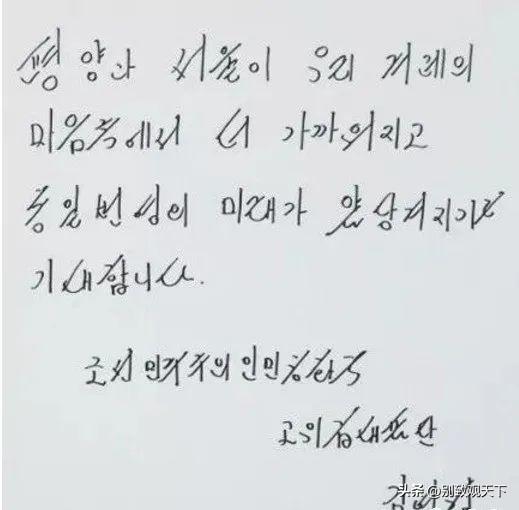 평양과 서울이 우리 겨레의
마음속에서 더 가까워지고
통일 번영의 미래가 앞당겨지기를
기대합니다.
조선민주주의인민공화국
고위급대표단
김여정
头条 @别致观天下